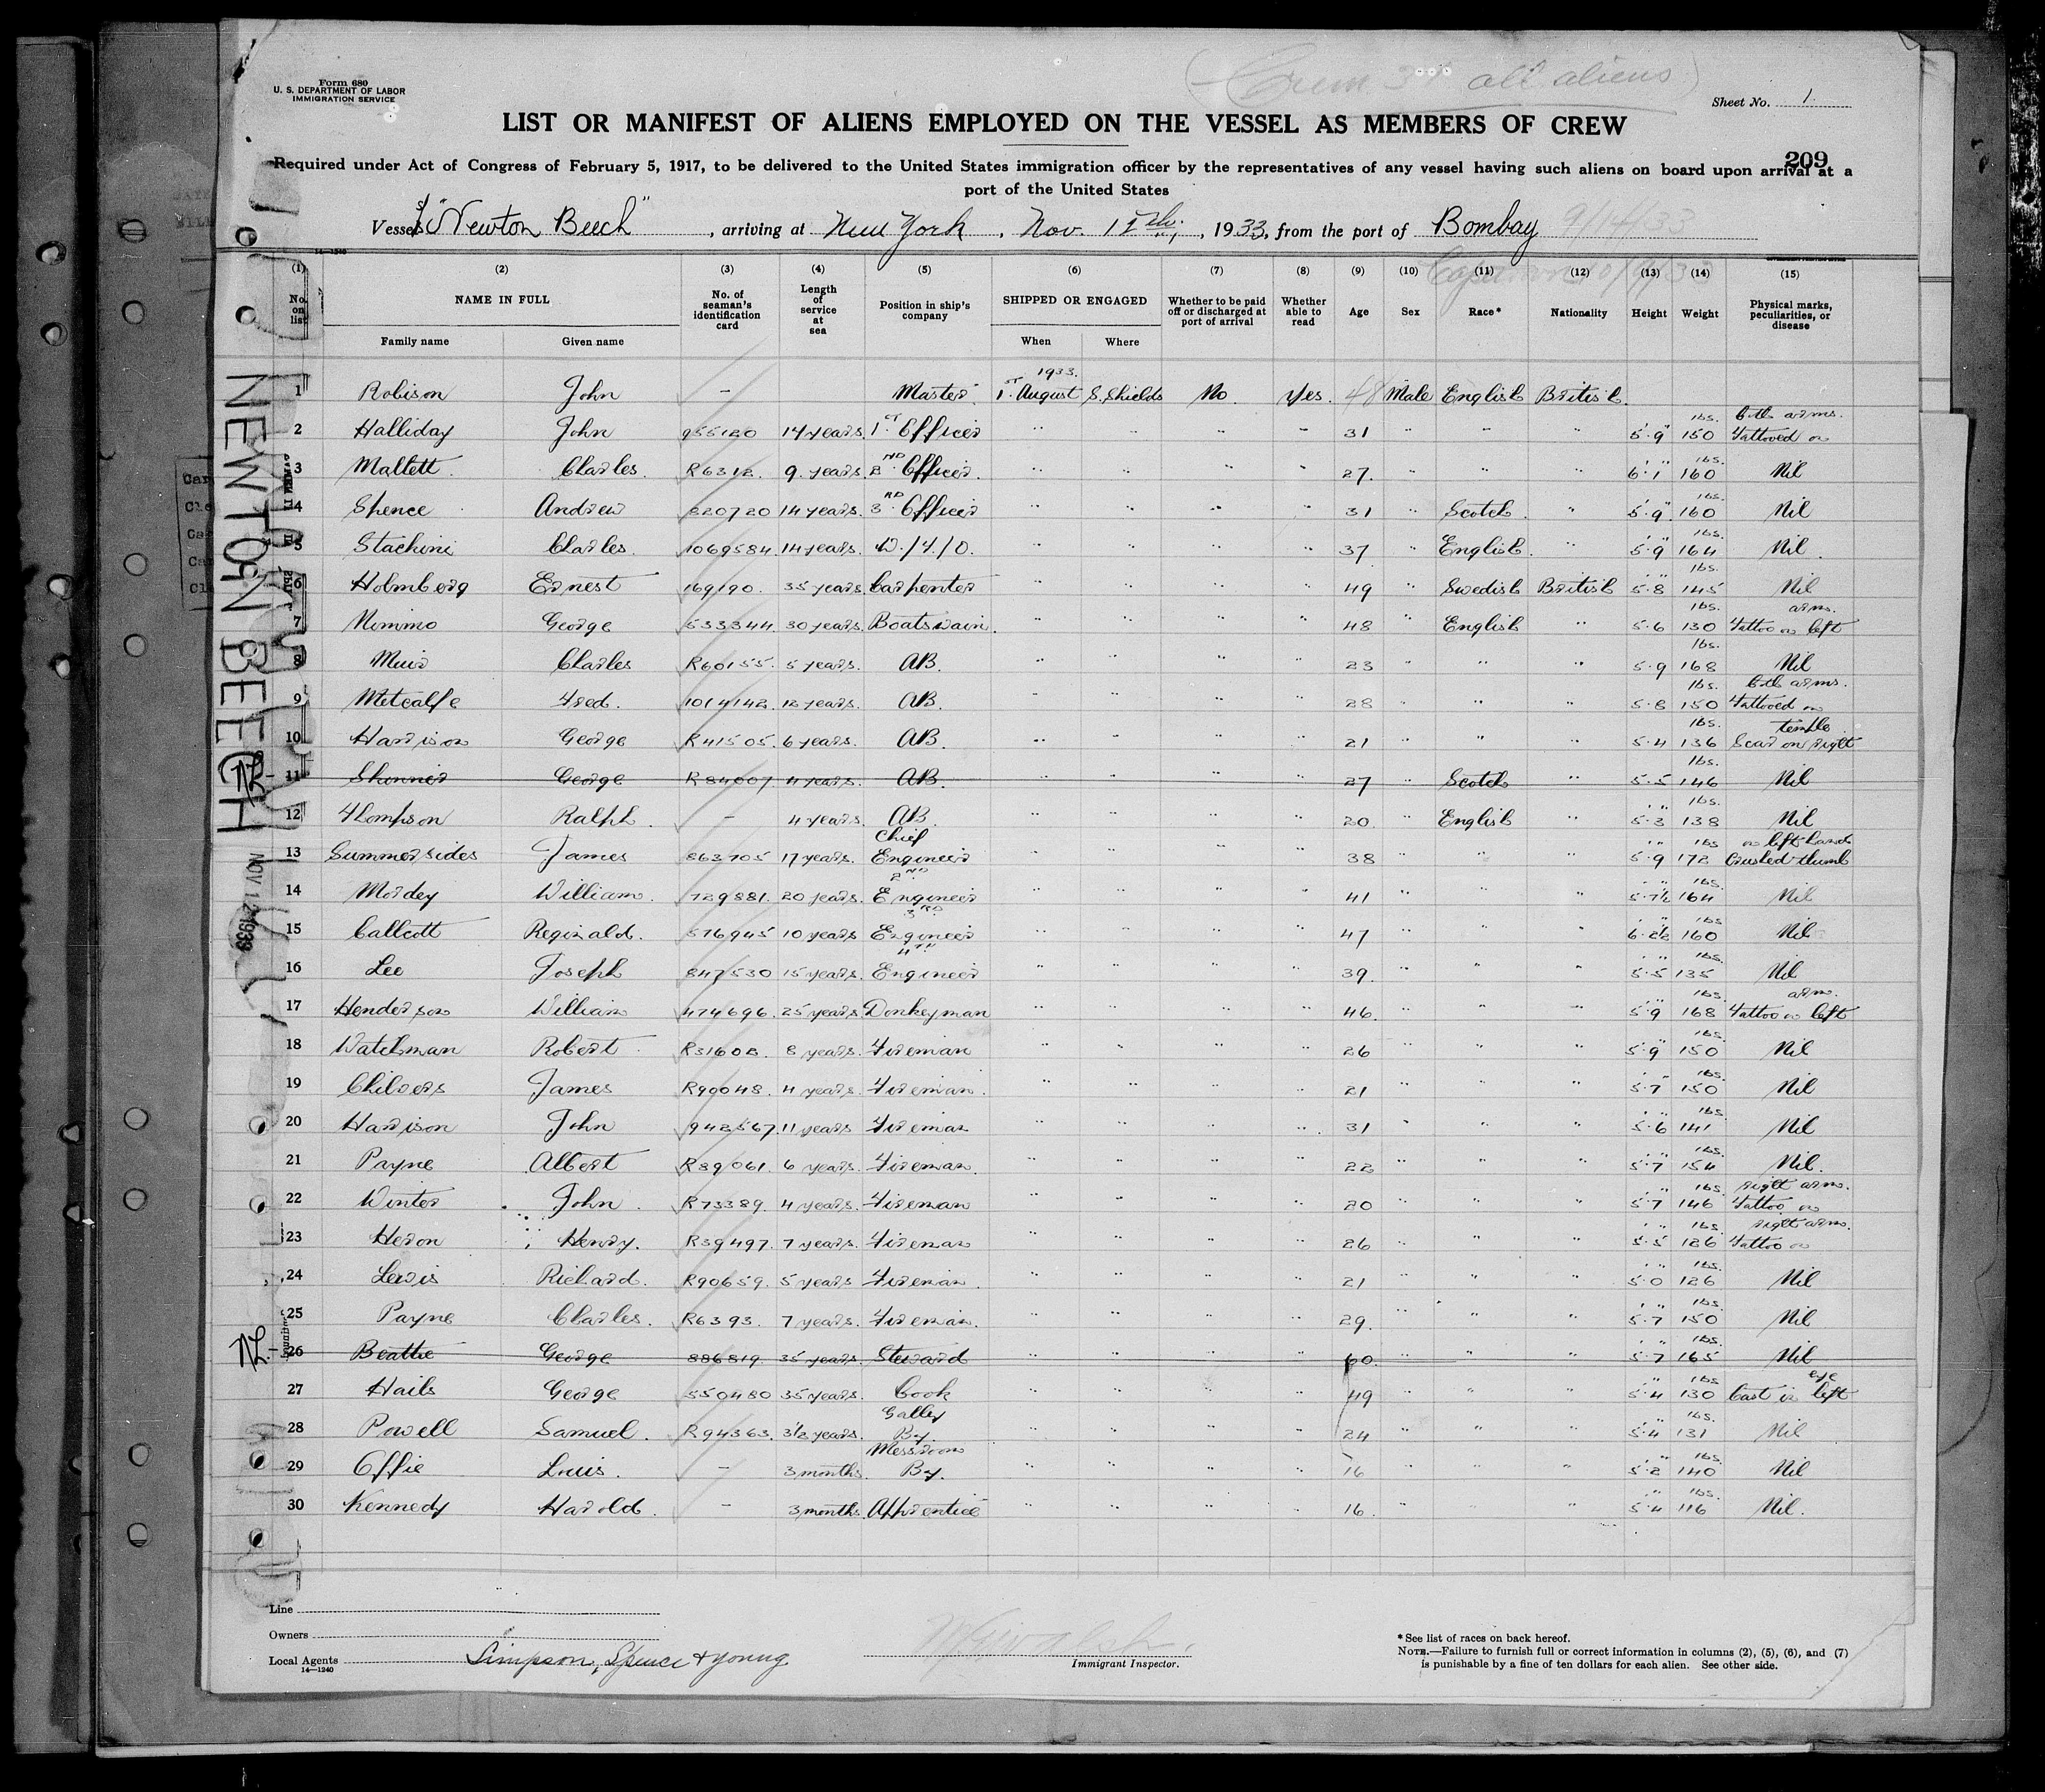 Form 680
U. S. DEPARTMENT OF LABOR
IMMIGRATION SERVICE
(Crew 31 all aliens)
Sheet No. 1
LIST OR MANIFEST OF ALIENS EMPLOYED ON THE VESSEL AS MEMBERS OF CREW
209
Required under Act of Congress of February 5, 1917, to be delivered to the United States immigration officer by the representatives of any vessel having such aliens on board upon arrival at a
port of the United States
Vessel "Newton Beech", arriving at New York, Nov. 12th, 1933, from the port of Bombay 9/14/33
14—1240
(1) (2) (3) (4) (5) (6) (7) (8) (9) (10) (11) (12) (13) (14) (15)
No. on list NAME IN FULL No. of seaman's identification card Length of service at sea Position in ship's company SHIPPED OR ENGAGED Whether to be paid off or discharged at port of arrival Whether able to read Age Sex Race* Nationality Height Weight Physical marks, peculiarities, or disease
Family name Given name When Where
1 Robison John — Master 1st August 1933. S. Shields No. Yes. 48 Male English British.
2 Halliday John 955120 14 years. 1st Officer " " " " 31 " " " 5'.9" 150 lbs. Tattooed on both arms.
3 Mallett. Charles. R6312. 9. years. 2nd Officer. " " " " 27. " " " 6'.1" 160 lbs. Nil
4 Spence Andrew 820720 14 years. 3rd Officer " " " " 31 " Scotch. " 5'.9" 160 lbs. Nil
5 Stachini Charles. 1069584. 14 years. W./T./O. " " " " 37 " English. " 5'.9" 164 lbs. Nil.
6 Holmberg Ernest 169190. 35 years. Carpenter " " " " 49 " Swedish British 5'.8" 145 lbs. Nil
7 Nimmo George 533344. 30 years. Boatswain. " " " " 48 " English " 5.6 130 lbs. Tattoo on left arm.
8 Muir Charles R60155. 5 years. AB. " " " " 23 " " " 5.9 168 lbs. Nil
9 Metcalfe Fred. 1014142. 12 years. AB. " " " " 28 " " " 5.8 150 lbs. Tattooed on both arms.
10 Harrison George R41505. 6 years. AB. " " " " 21 " " " 5.4 136 lbs. Scar on right temple
11 Skinner George R84007. 4 years. AB. " " " " 27 " Scotch " 5.5 146 lbs. Nil
12 Thompson Ralph. — 4 years. AB " " " " 20. " English " 5'.3" 138 lbs. Nil
13 Summersides James 863705 17 years. Chief Engineer " " " " 38 " " " 5'.9" 172 lbs Crushed thumb on left hand
14 Mordey William. 729881. 20 years. 2nd Engineer " " " " 41 " " " 5'.7½" 164 lbs. Nil
15 Callcott Reginald. 576945 10 years 3rd Engineer " " " " 47 " " " 6'.2½" 160 lbs Nil
16 Lee Joseph 847530 15 years. 4th Engineer " " " " 39. " " " 5'.5" 135 lbs. Nil
17 Henderson William 474696. 25 years. Donkeyman " " " " 46. " " " 5'.9" 168 lbs. Tattoo on left arm.
18 Watchman Robert. R31608. 8 years. Fireman " " " " 26 " " " 5'.9" 150 lbs Nil
19 Chilvers James R90048. 4 years. Fireman. " " " " 21 " " " 5'.7" 150 lbs. Nil
20 Harrison John 942567. 11 years Fireman " " " " 31 " " " 5'.6" 141 lbs. Nil
21 Payne Albert R89061. 6 years. Fireman. " " " " 22 " " " 5'.7" 154 lbs. Nil.
22 Winter John. R73389. 4 years. Fireman " " " " 20 " " " 5'.7" 146 lbs. Tattoo on right arm.
23 Heron Henry. R39497. 7 years. Fireman " " " " 26 " " " 5'.5" 126 lbs Tattoo on right arm.
24 Lewis Richard. R90659. 5 years Fireman. " " " " 21 " " " 5'.0" 126 lbs. Nil
25 Payne Charles. R6393. 7 years. Fireman. " " " " 29. " " " 5'.7" 150 lbs. Nil
26 Beattie George 886819. 35 years. Steward " " " " 60. " " " 5'.7" 165 lbs. Nil
27 Hails George 550480 35 years. Cook " " " " 49 " " " 5'.4" 130 lbs Cast in left eye
28 Powell Samuel. R94363. 3½ years. Galley Boy. " " " " 24 " " " 5'.4" 131 lbs. Nil
29 Offie Louis. — 3 months. Messroom Boy. " " " " 16 " " " 5'.2" 140 lbs Nil
30 Kennedy Harold. — 3 months. Apprentice " " " " 16. " " " 5'.4" 116 lbs. Nil.
NEWTON BEECH
NOV 12 1933
NL
NL
Line
Owners
Local Agents Simpson, Spence & Young
14—1240
Immigrant Inspector.
* See list of races on back hereof.
NOTE.—Failure to furnish full or correct information in columns (2), (5), (6), and (7)
is punishable by a fine of ten dollars for each alien. See other side.